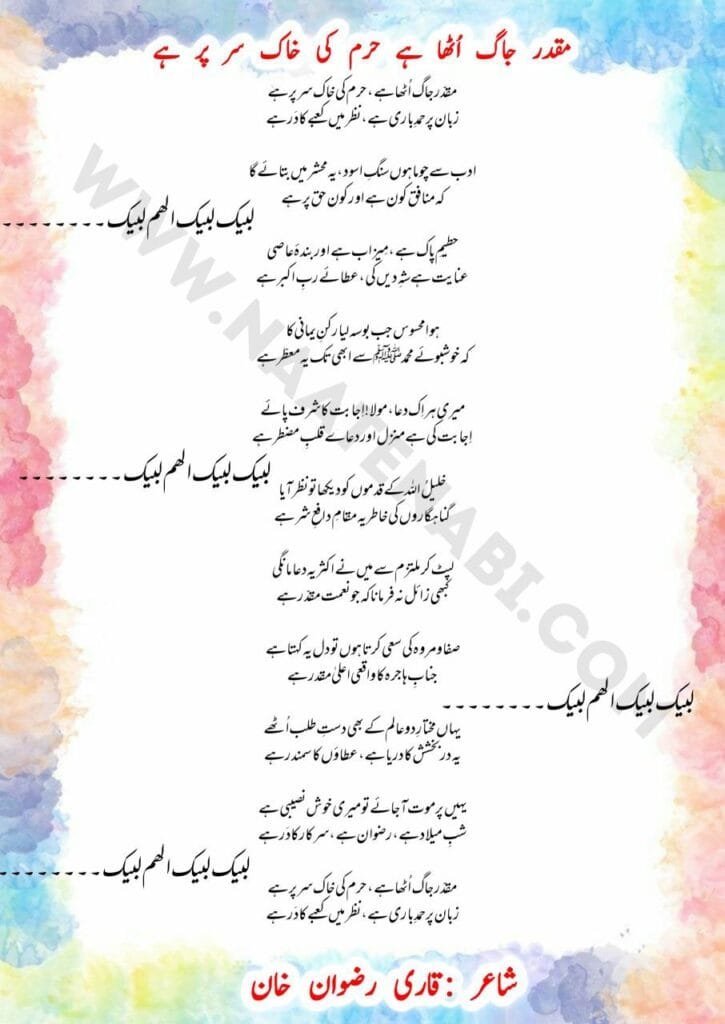 مقدر جاگ اُٹھا ہے حرم کی خاک سر پر ہے
مقدر جاگ اُٹھا ہے، حرم کی خاک سر پر ہے
زبان پر حمدِ باری ہے، نظر میں کعبے کا دَر ہے
ادب سے چوما ہوں سنگِ اسود، یہ محشر میں بتائے گا
کہ منافق کون ہے اور کون حق پر ہے
لبیک لبیک الھم لبیک۔۔۔۔۔۔۔۔
حطیمِ پاک ہے، مِیزاب ہے اور بندۂ عاصی
عنایت ہے شہِ دیں کی، عطائے ربِ اکبر ہے
ہوا محسوس جب بوسہ لیا رکنِ یمانی کا
کہ خوشبوئے محمد ﷺ سے ابھی تک یہ معطر ہے
میری ہر اِک دعا، مولا! اِجابت کا شرف پائے
اِجابت کی ہے منزل اور دعاے قلبِ مضطر ہے
لبیک لبیک الھم لبیک۔۔۔۔۔۔۔۔
خلیلُ اللہ کے قدموں کو دیکھا تو نظر آیا
گناہگاروں کی خاطر یہ مقامِ دافعِ شر ہے
لپٹ کر ملتزم سے میں نے اکثر یہ دعا مانگی
کبھی زائل نہ فرمانا کہ جو نعمت مقدّر ہے
صفا و مروہ کی سعی کرتا ہوں تو دل یہ کہتا ہے
جنابِ ہاجرہ کا واقعی اعلیٰ مقدر ہے
لبیک لبیک الھم لبیک۔۔۔۔۔۔۔۔
یہاں مختارِ دو عالم کے بھی دستِ طلب اُٹھے
یہ در بخشش کا دریا ہے، عطاؤں کا سمندر ہے
یہیں پر موت آ جائے تو میری خوش نصیبی ہے
شبِ میلاد ہے، رضوان ہے، سرکار کا دَر ہے
لبیک لبیک الھم لبیک۔۔۔۔۔۔۔۔
مقدر جاگ اُٹھا ہے، حرم کی خاک سر پر ہے
زبان پر حمدِ باری ہے، نظر میں کعبے کا دَر ہے
شاعر : قاری رضوان خان
WWW.NAATENABI.COM